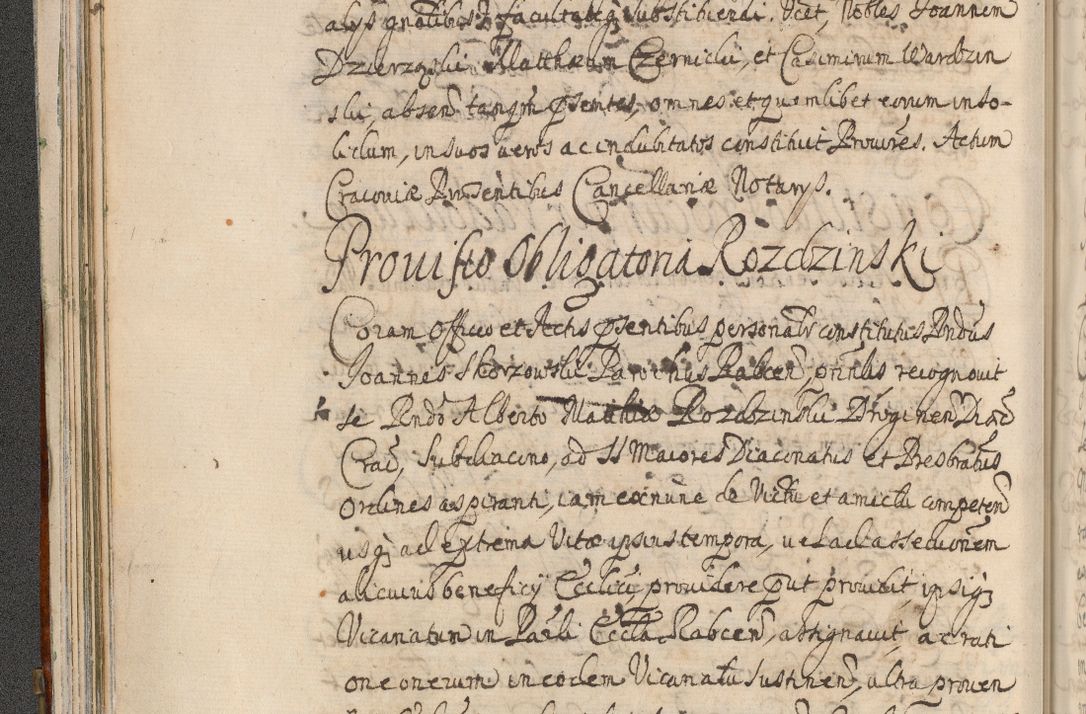 alys gnalibus et facultateq substituendi. Vcet, Nobles Joannem
Dzierzgski Matthæum Czernicki, et Casimirum Wardzin
ski, absen tanqm pstentes, omnes et quemlibet eorum in so-
lidum, in suos veros ac indubitatos constituit Procures. Actum
Cracoviæ Præsentibus Cancellariæ Notarys.
Provisio Obligatoria Rozdzinski
Coram Officio et Actis psentibus personalr constitutus Rndus
Joannes Skorzowski Parochus Rabcen, ptinlis recognovit
se Rndo Alberto Matthiæ Rozdzinski Droginen Diæc
Crac, Subdiacono, ad SS Maiores Diaconatus et Presbratus
Ordines aspiranti, iam ex nunc de Victu et amictu competen
usq ad extrema Vitæ ipsius tempora, vel ad assecuonem
alicuius beneficy Ecclici providere put providit, ipsiq
Vicariatum in Pareli Eccla Rabcen, assignavit, ac rati
one onerum in eodem Vicariatu sustinen, ultra proven